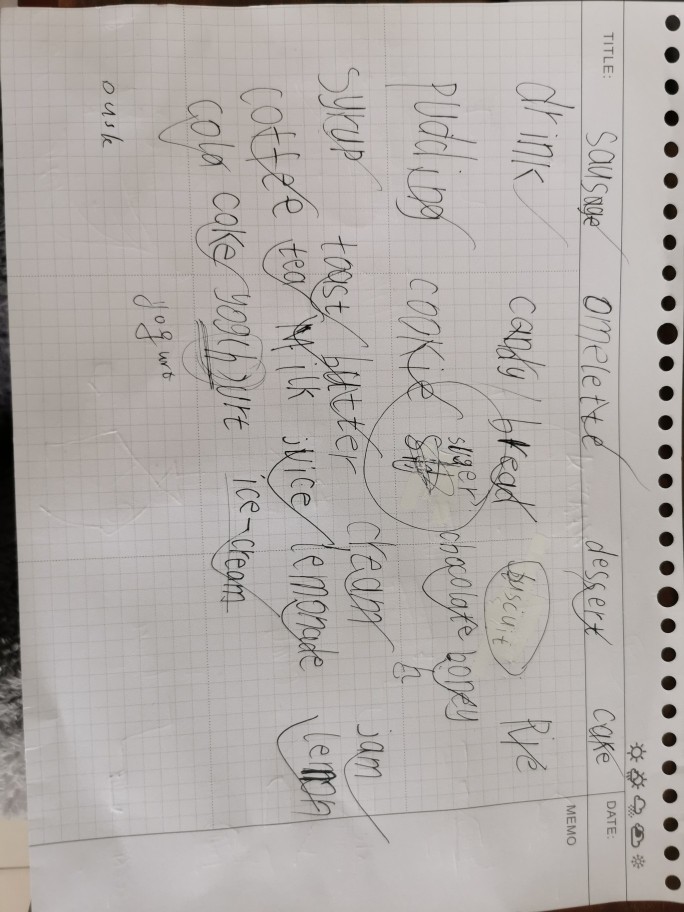 TITLE: DATE:
sausage omelette dessert cake
MEMO
drink candy bread biscuit Pie
pudding cookie suger chocolate honey
h
syrup toast butter cream jam
coffee tea Milk juice lemonade lemon
cola coke yoghurt ice-cream
yogurt